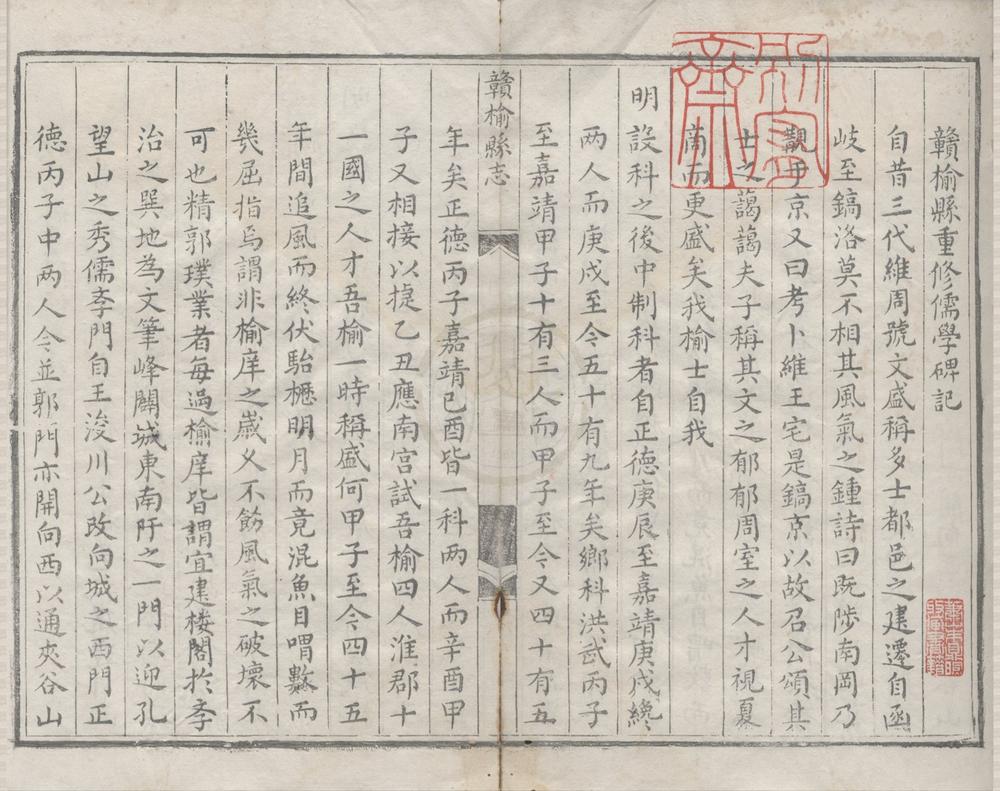 贛榆縣重修儒學碑記
自昔三代維周號文盛稱多士都邑之建遷自函
岐至鎬洛莫不相其風氣之鍾詩曰既陟南岡乃
觀于京又曰考卜維王宅是鎬京以故召公頌其
士之藹藹夫子稱其文之郁郁周室之人才視夏
商而更盛矣我榆士自我
明設科之後中制科者自正德庚辰至嘉靖庚戌纔
两人而庚戌至今五十有九年矣鄉科洪武丙子
至嘉靖甲子十有三人而甲子至今又四十有五
贛榆縣志
年矣正德丙子嘉靖已酉皆一科两人而辛酉甲
子又相接以捷乙丑應南宫試吾榆四人淮郡十
一國之人才吾榆一時稱盛何甲子至今四十五
年間追風而終伏駘櫪明月而竟混魚目喟數而
幾屈指焉謂非榆庠之歲乆不飭風氣之破壞不
可也精郭璞業者每過榆庠皆謂宜建楼閣於李
治之巽地為文筆峰闢城東南阡之一門以迎孔
望山之秀儒李門自王浚川公改向城之西門正
德丙子中两人今並郭門亦開向西以通夾谷山